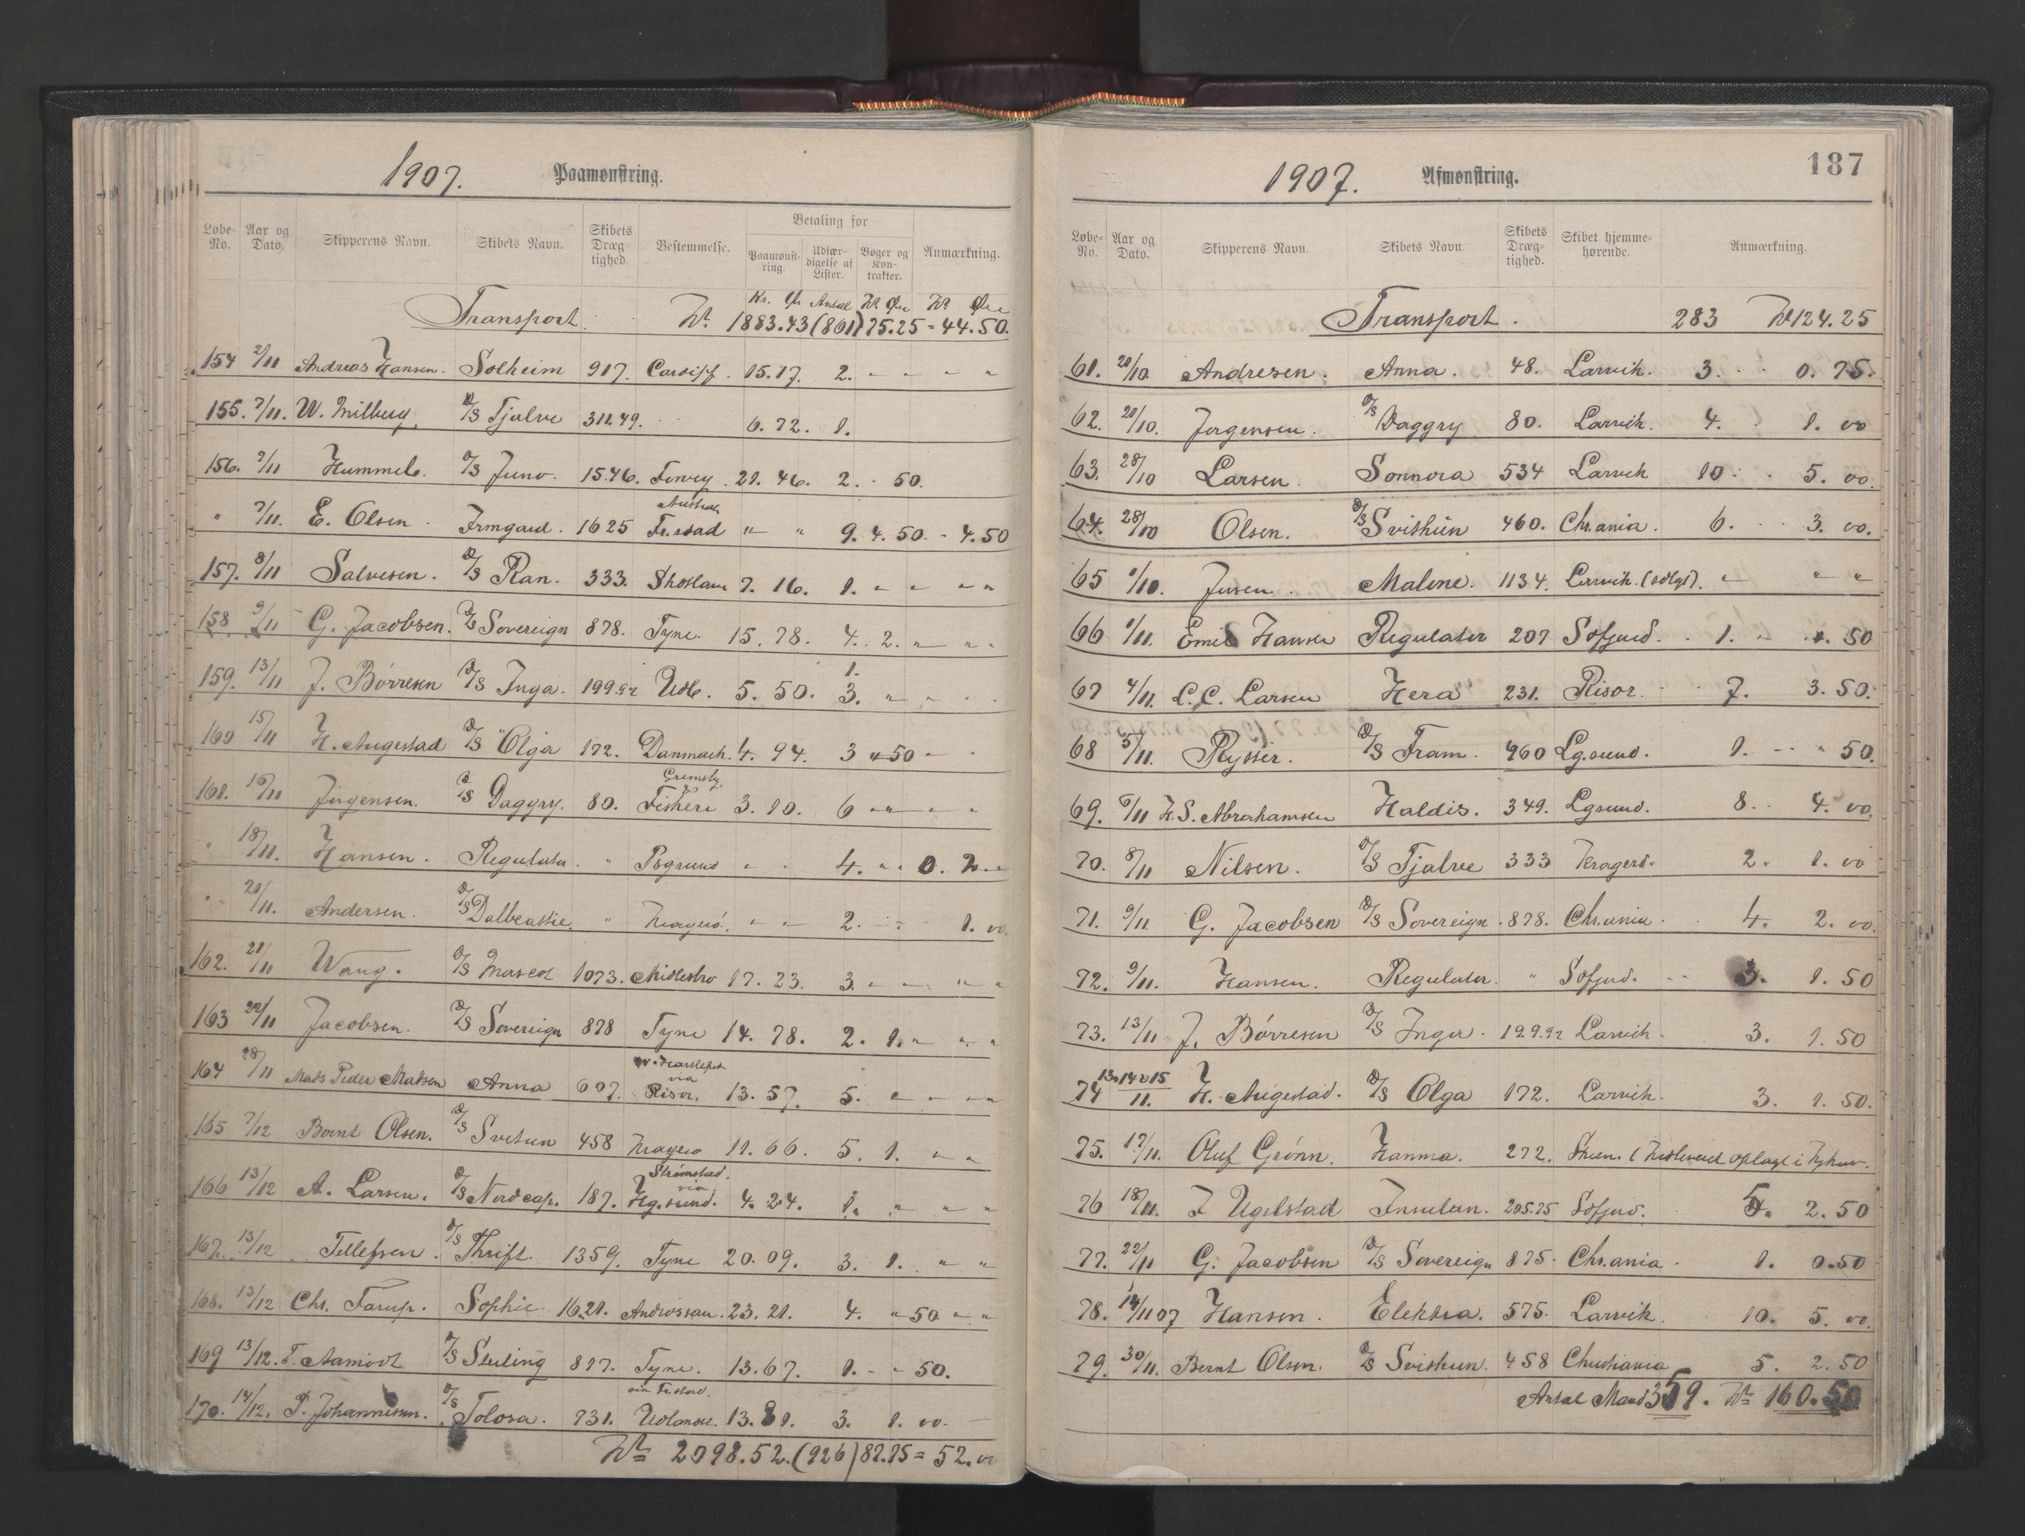 1907. Paamønstring.
Løbe-No. Aar og Dato. Skipperens Navn. Skibets Navn. Skibets Dræg-tighed. Bestemmelse. Betaling for Paamønst-ring. Udfær-digelse af Lister. Bøger og Kon-trakter. Anmærkning.
Kr. Ør Antal Kr Øre Kr Øre
Transport. Kr. 1883.43 (861) 75.25 = 44.50.
154 2/11 Andreas Hansen. Solheim 917. Cardiff. 15.17. 2. " " " "
155. 7/11. W. Milberg. D/S Tjalve 311.49. 6.72. 1.
156. 7/11 Hummel. D/S Juno. 1546. Torvey. 21.46. 2. 50.
" 7/11. E. Olsen. Irmgard. 1625 Fr.stad " " 9. 4.50. - 4.50
157. 8/11 Salvesen. D/S Ran. 333. 7.16. 1. " " " "
158 9/11 G. Jacobsen. D/S Sovereign 878. Tyne. 15.78. 4. 2. " " "
159. 13/11 J. Børresen D/S Inga. 199.92 Udl. 5.50. 1. 3. " " "
160 15/11 H. Augestad D/S Olga 172. Danmark. 4.94 3 " 50 " "
161. 16/11 Jørgensen. D/S Daggry. 80. Grimsby Fiskeri 3.10. 6 " " " "
" 18/11. Hansen. Regulator. " Psgrund " " 4. " " 0.
" 20/11. Andersen. D/S Dalbeattie. " Kragerø. " " 2. 1.00.
162. 21/11 Wang. D/S Mascot 1073. Midlesbro 17.23. 3. " " " "
163 22/11 Jacobsen. D/S Sovereign 878 Tyne 14.78. 2. 1. " " "
164 28/11 Mads Peder Madsen Anna 607. via Risør. 13.57. 5. " " " "
165 7/12 Bernt Olsen. D/S Svitun 458 Kragerø 11.66. 5. 1. " "
166 13/12 A. Larsen. D/S Nordcap. 187. Strømstad. via Hg.sund. 4.24. 1. " " "
167. 13/12 Tellefsen. D/S Thrift. 1359. Tyne 20.09. 3. 1. " "
168. 13/12 Chr. Tarup. Sophie. 1621. Androssan. 23.21. 4. " 50 " "
169 13/12. T. Aamodt. D/S Sterling 877. Tyne. 13.67. 1. - " 50.
170. 14/12. P. Johannesen. D/S Tolosa. 731. via Fr.stad. Udlandet. 13.81. 3. 1.00. -
Kr 2098.52. (926) 82.75 = 52.00
187
1907. Afmønstring.
Løbe-No. Aar og Dato. Skipperens Navn. Skibets Navn. Skibets Dræg-tighed. Skibet hjemme-hørende. Anmærkning.
Transport. 283 Kr 124.25
61. 20/10. Andresen. Anna. 48. Larvik. 3. 0.75.
62. 20/10. Jørgensen. D/S Daggry 80. Larvik 4. 1.00
63. 28/10 Larsen. Sonnora 534 Larvik 10. 5.00.
64. 28/10 Olsen. D/S Svithun 460. Chr.ania. 6. 3.00.
65 1/10. Malone. 1134. Larvik. (solgt). " " "
66 1/11. Emil Hansen Regulator 207 Sofjord. 1. " ". 50
67 4/11. L.C. Larsen Hera 231. Risør. 7. 3.50.
68 5/11. D/S Fram. 960 Lg.sund. 1. " 50.
69. 6/11 H.S. Abrahamsen Haldis. 349. Lgsund. 8. 4.00.
70. 8/11 Nilsen. D/S Tjalve 333 Kragerø. 2. 1.00
71. 9/11 G. Jacobsen D/S Sovereign. 878. Chr.ania. 4. 2.00.
72. 9/11. Hansen. Regulator. " Sofjord. 3. 1.50
73. 13/11 J. Børresen D/S Inga. 199.92 Larvik. 3. 1.50
74 13.14 & 15/11. H. Augestad. D/S Olga 172. Larvik. 3. 1.50.
75. 17/11. Oluf Grønn. Hanna. 272. Skien. oplagt i
76 18/11. J Ugelstad Insulan. 205.75 Sofjord. 5. 2.50
77. 22/11 G. Jacobsen D/S Sovereign 875. Chr.ania. 1. 0.50
78. 14/11 07 Hansen. Elektra. 575. Larvik. 10. 5.00.
79. 30/11. Bernt Olsen. D/S Svithun. 458 Christiania 5. 2.50
Antal Mand 359. Kr 160.50